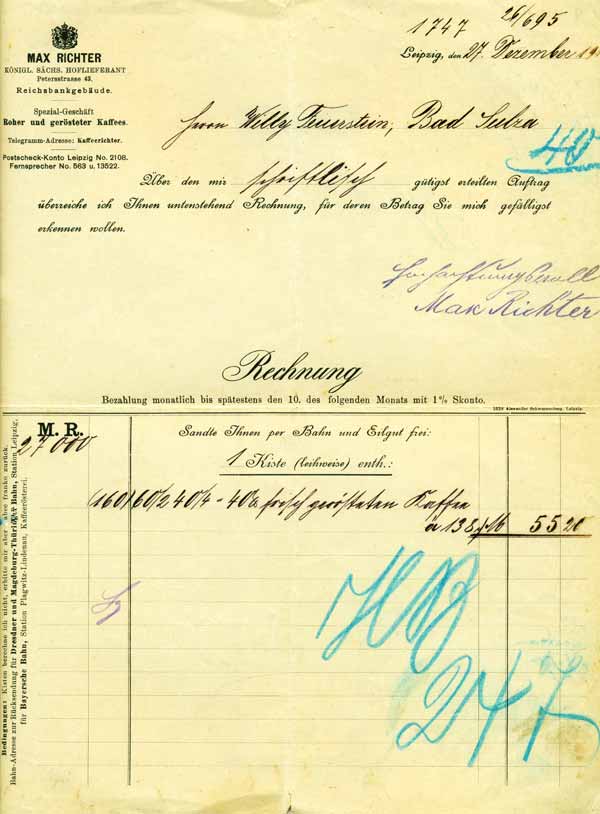 1747 26/695
MAX RICHTER
KÖNIGL. SÄCHS. HOFLIEFERANT
Petersstrasse 43,
Reichsbankgebäude.
Leipzig, den 27. Dezember 19
Spezial-Geschäft
Roher und gerösteter Kaffees.
Telegramm-Adresse: Kaffeerichter.
Postscheck-Konto Leipzig No. 2108.
Fernsprecher No. 563 u. 13522.
Herrn Willy Feuerstein, Bad Sulza
40
Über den mir schriftlisch gütigst erteilten Auftrag
überreiche ich Ihnen untenstehend Rechnung, für deren Betrag Sie mich gefälligst
erkennen wollen.
Hochachtungsvoll
Max Richter
Rechnung
Bezahlung monatlich bis spätestens den 10. des folgenden Monats mit 1% Skonto.
M. R.
27000
Sandte Ihnen per Bahn und Eilgut frei:
1 Kiste (leihweise) enth.:
(160) 60/2 40/4 - 40 frisch gerösteten Kaffee
a 138 55 20
HB
247
Bedingungen: Kisten berechne ich nicht, erbitte mir aber aber franko zurück.
Bahn-Adresse zur Rücksendung für Dresdner und Magdeburg-Thüringer Bahn, Station Leipzig,
für Bayersche Bahn, Station Plagwitz-Lindenau, Kaffeerösterei.